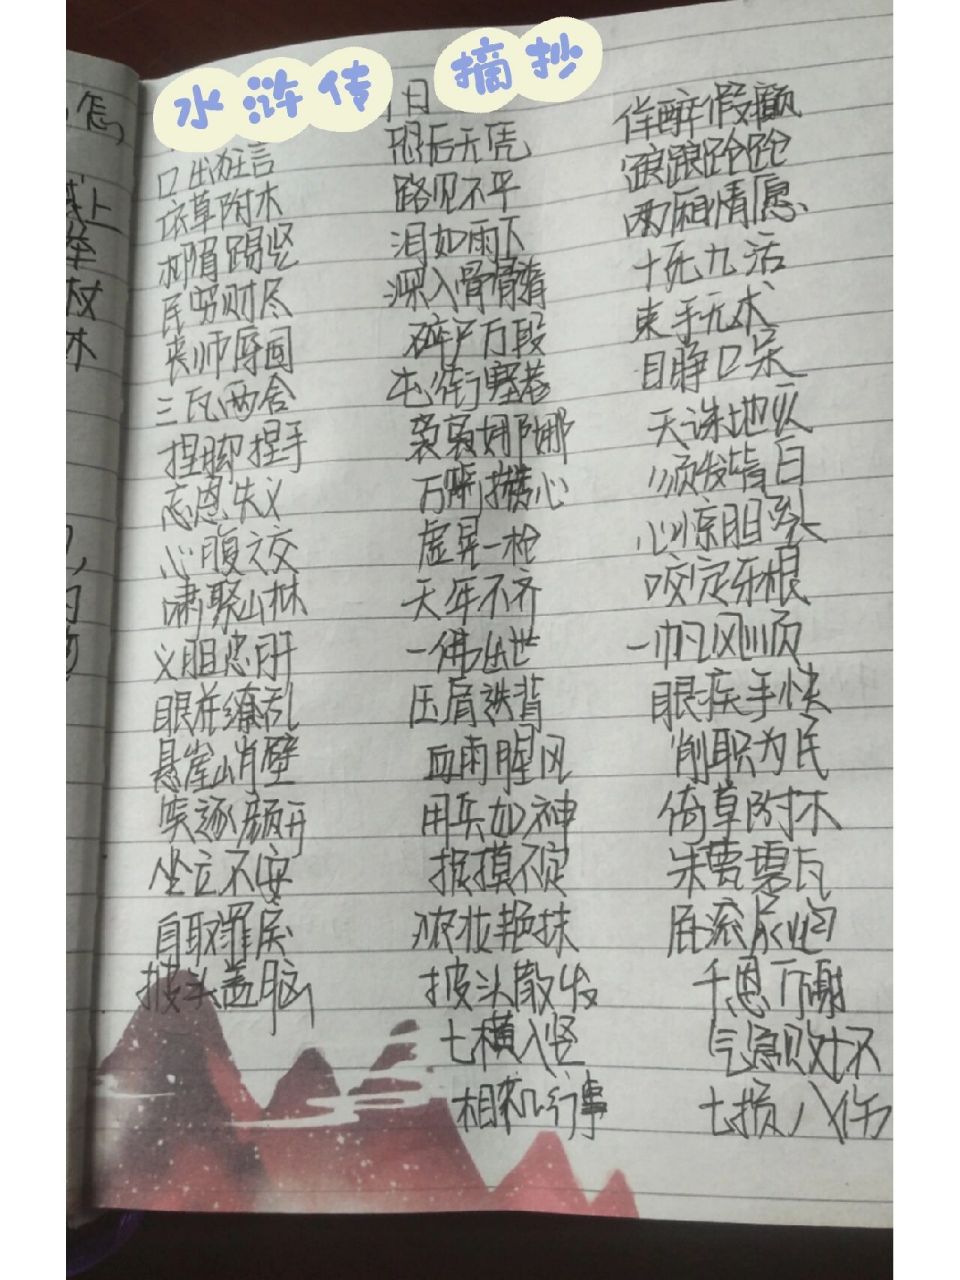 水浒传 摘抄
口出狂言
依草附木
柳眉踢竖
民穷财尽
丧师辱国
三瓦两舍
捏脚捏手
忘恩失义
心腹之交
啸聚山林
义胆忠肝
眼花缭乱
悬崖峭壁
笑逐颜开
坐立不安
自取罪戾
披头盖脑
恐后无凭
路见不平
泪如雨下
深入骨髓
碎尸万段
屯街塞巷
袅袅娜娜
万箭攒心
虚晃一枪
天年不齐
一佛出世
压肩迭背
血雨腥风
用兵如神
捉摸不定
浓妆艳抹
披头散发
七横八竖
相机行事
佯醉假颠
踉踉跄跄
两厢情愿
十死九活
束手无术
目睁口呆
天诛地灭
须发皆白
心惊胆裂
咬定牙根
一帆风顺
眼疾手快
削职为民
倚草附木
朱甍碧瓦
屁滚尿流
千恩万谢
气急败坏
七损八伤
怎
上
杖
木